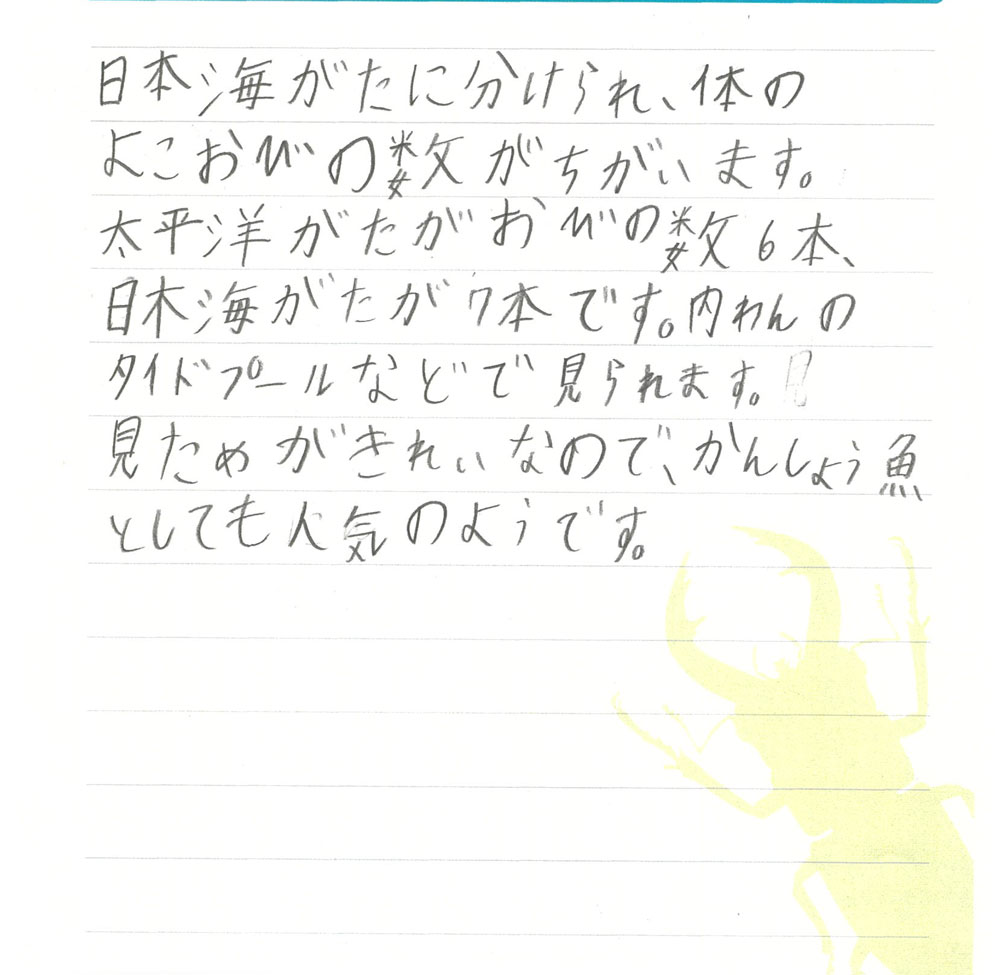 日本海がたに分けられ、体の
よこおびの数がちがいます。
太平洋がたがおびの数6本、
日本海がたが7本です。内わんの
タイドプールなどで見られます。
見ためがきれいなので、かんしょう魚
としても人気のようです。